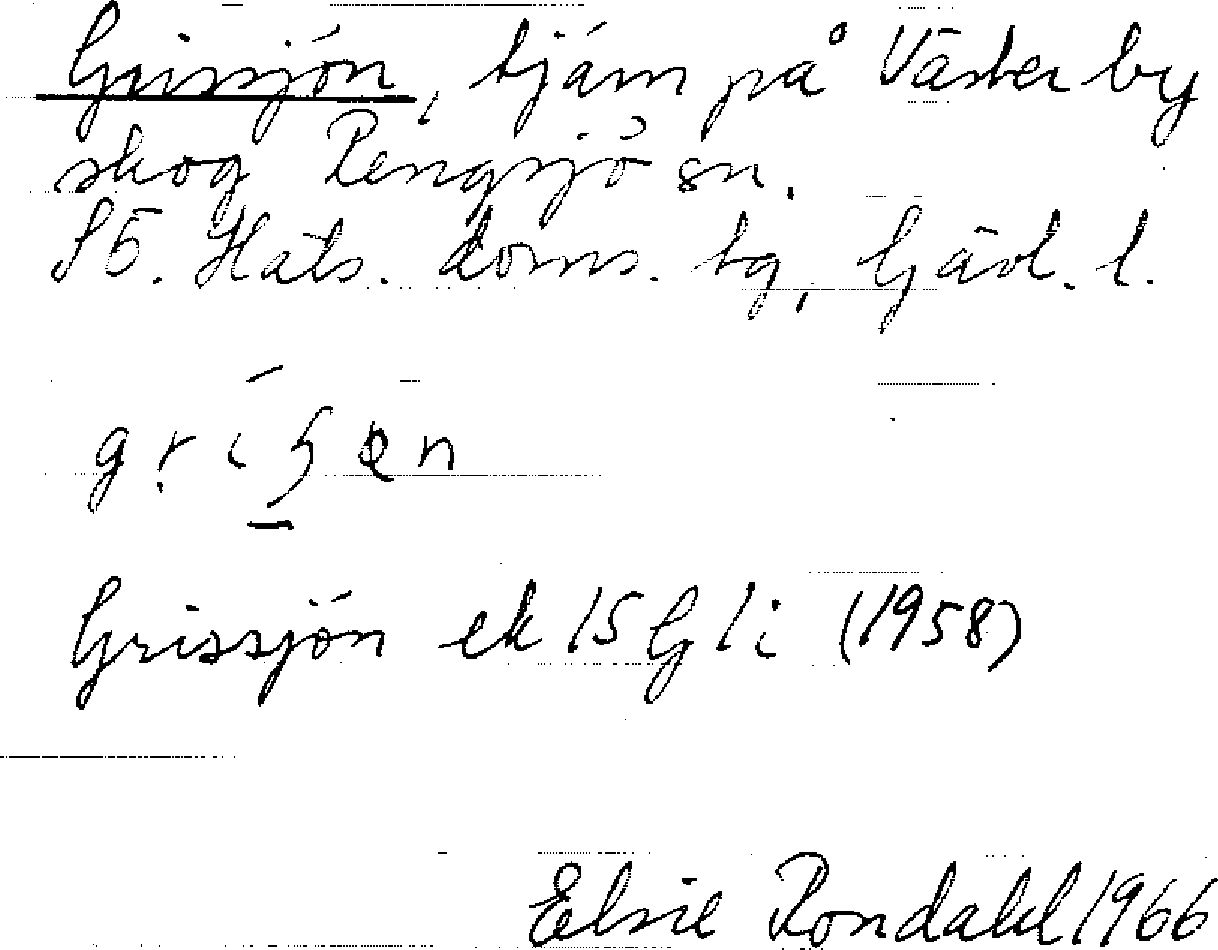 Grissjön, tjärn på Västerby
skog Rengsjö sn.
SÖ. Häls. doms. tg, Gävl. l.
Grissjön ek 15G 1i (1958)
Elsie Rondahl 1966